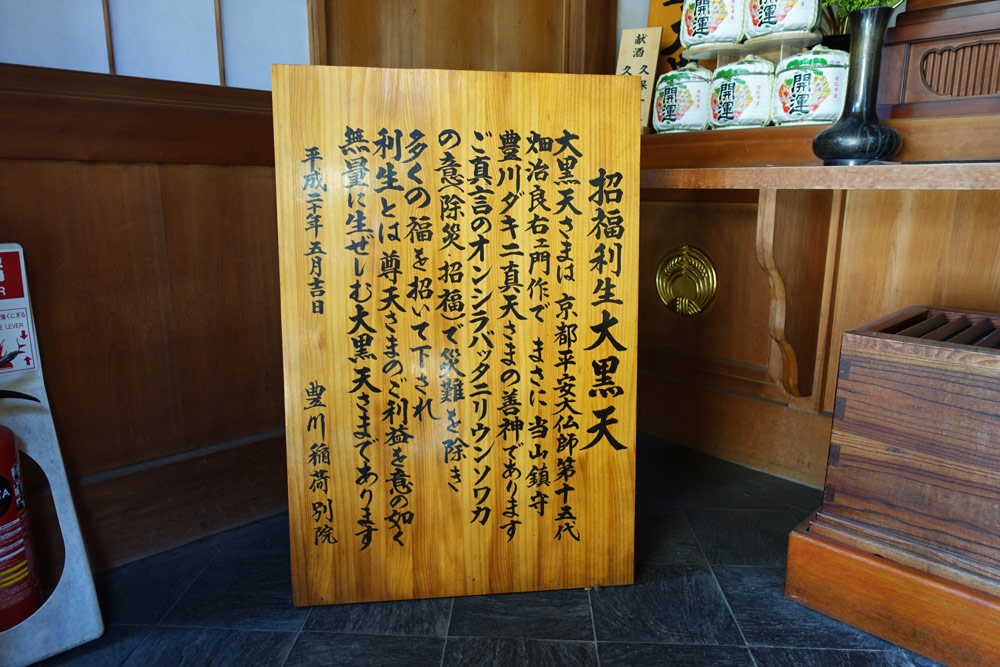 招福利生大黒天
大黒天さまは 京都平安大仏師第十五代
畑治良右ヱ門作で まさに 当山鎮守
豊川ダキニ真天さまの善神であります
ご真言のオンシラバッタニリウンソワカ
の意(除災・招福)で災難を除き
多くの福を招いて下され
利生とは尊天さまのご利益を意の如く
無量に生ぜしむ大黒天さまであります
平成二十年五月吉日 豊川稲荷別院
献酒
開運
開運
開運
開運
開運
LEVER